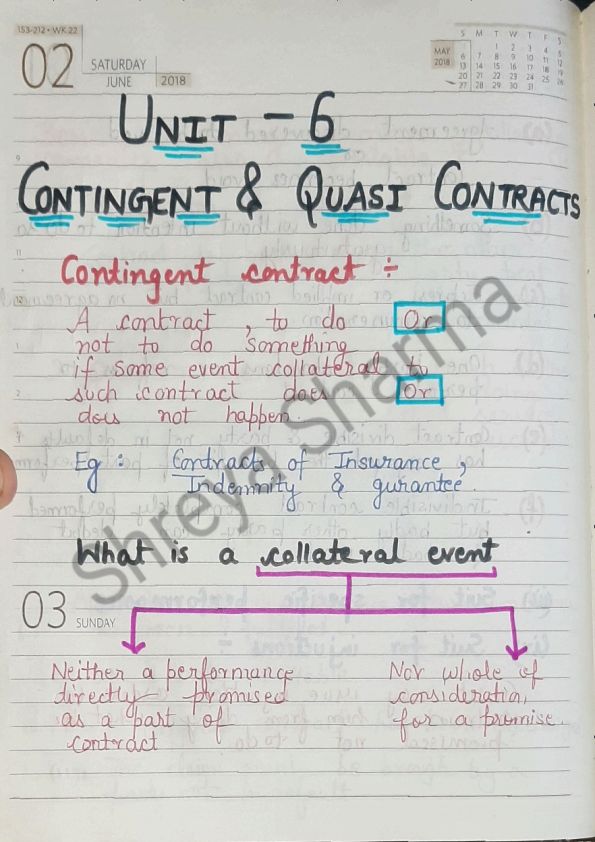 153-212 • WK 22
02
SATURDAY
JUNE 2018
MAY
2018
S M T W T F S
1 2 3 4 5
6 7 8 9 10 11 12
13 14 15 16 17 18 19
20 21 22 23 24 25 26
27 28 29 30 31
UNIT - 6
CONTINGENT & QUASI CONTRACTS
Contingent contract ÷
A contract, to do Or
not to do something
if some event collateral to
such contract does Or
does not happen.
Eg : Contracts of Insurance,
Indemnity & gurantee.
What is a collateral event
03
SUNDAY
Neither a performance
directly promised
as a part of
contract
Nor whole of
consideration
for a promise.
Shreya Sharma